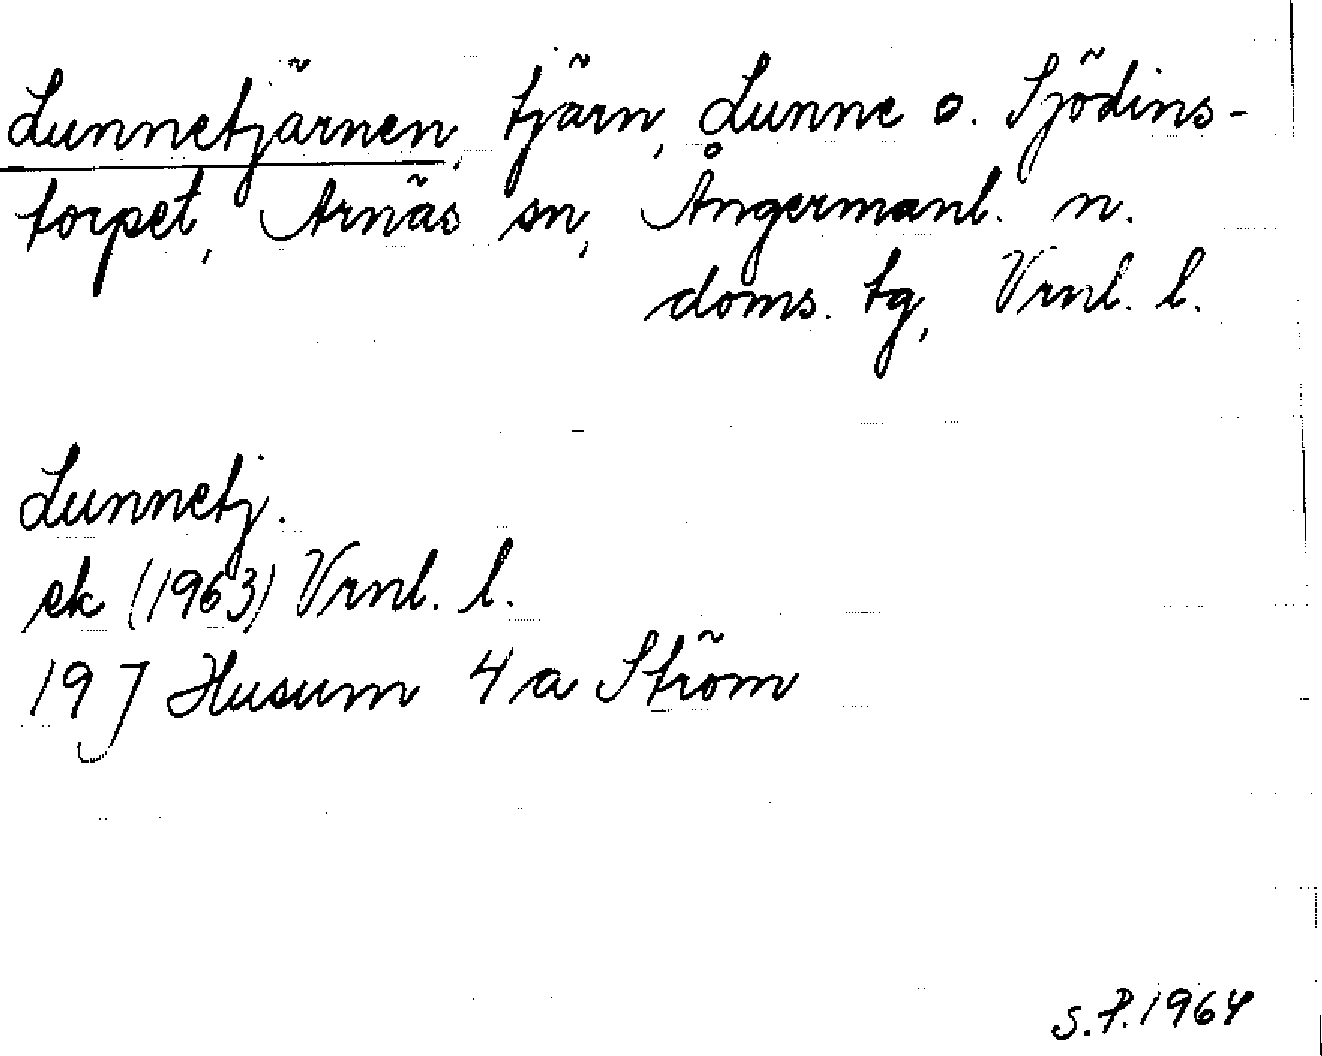 Lunnetjärnen, tjärn, Lunne o. Sjödins-
torpet, Arnäs sn, Ångermanl. n.
doms. tg, Vrnl. l.
Lunnetj.
ek (1963) Vrnl. l.
19 J Husum 4 a Ström
S.P. 1964